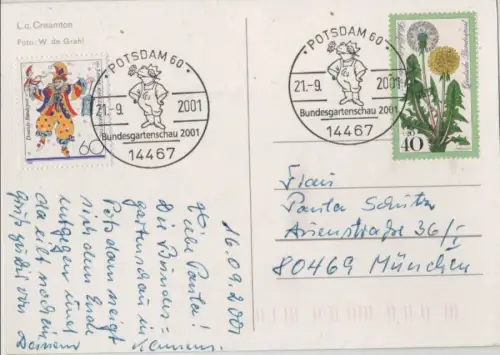 L.c. Creamtos
Foto: W. de Grahl
60
POTSDAM 60
21.-9. 2001
Bundesgartenschau 2001
14467
POTSDAM 60
21.-9. 2001
Bundesgartenschau 2001
14467
Deutsche Bundespost
40
16.09.2001
Liebe Panta!
Die Bundes=
gartenschau in
Potsdam neigt
sich dem Ende
entgegen und
da eilt noch ein
Gruß zu Dir von
Deinem
Frau
Panta Schütz
36/I
80469 München